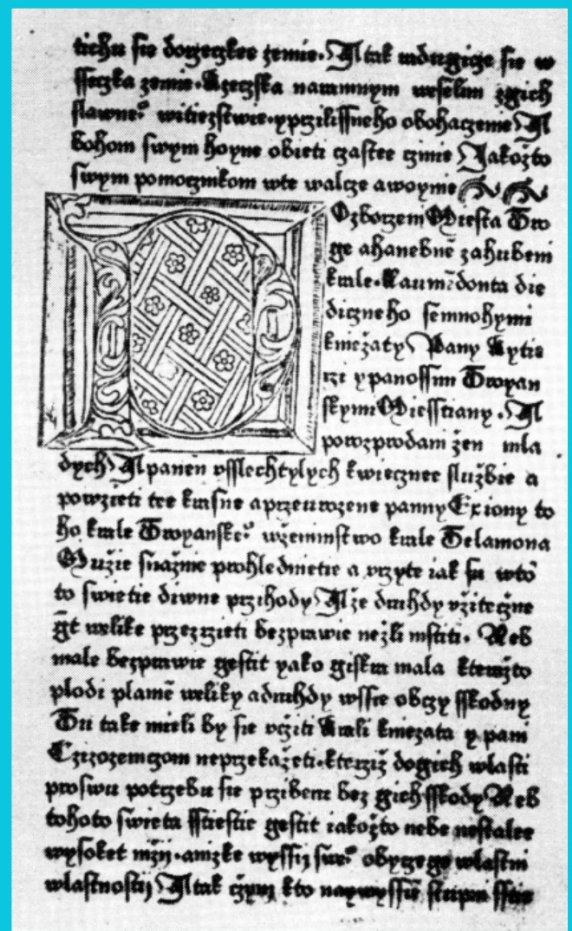 tichu sie dorzeczkee zemie. A tak nawrgicze sie w
sseczka zemie. Rzeczska naramnym weselim zgich
slawne° witiezstwie. yprzilissneho obohaczenie A
bohom swym hoyne obieti czastee czinie Jakozto
swym pomocznikom wte walcze awoynie
Ozborzem Miesta Tro
ge ahanebnē zahubeni
krale. Laumedonta die
diczneho semnohymi
kniezaty Pany Rytie
rzi ypanossim Troyan
skymi Miesstiany. A
porozprodani zen mla
dych A panen vsslechtylych kwiecznee sluzbie a
powzieti tee krasne aprzeurozene panny Exiony to
ho krale Troyanske° wzeminstwo krale Telamona
Muzie snaznie prohlednietie a vrzyte iak su wtō
to swietie diwne przihody A ze druhdy vziteczne
gt welike przezrzieti bezprawie nezli mstiti. Neb
male bezprawie gestit yako giskra mala kterazto
plodi plamē weliky adruhdy wssie obczy sskodny
Tu take mieli by sie vcziti Krali kniezata y pani
Czizozemczom neprzekazeti. kterziz dogich wlasti
proswu potrzebu sie przibeni bez gich sskody Neb
tohoto swieta sstiestie gestit iakozto nebe nestalee
wysoket mzij. anizke wyssij swe° obyczege wlastni
wlastnosti A tak czym kto naywyssie stupni sstie